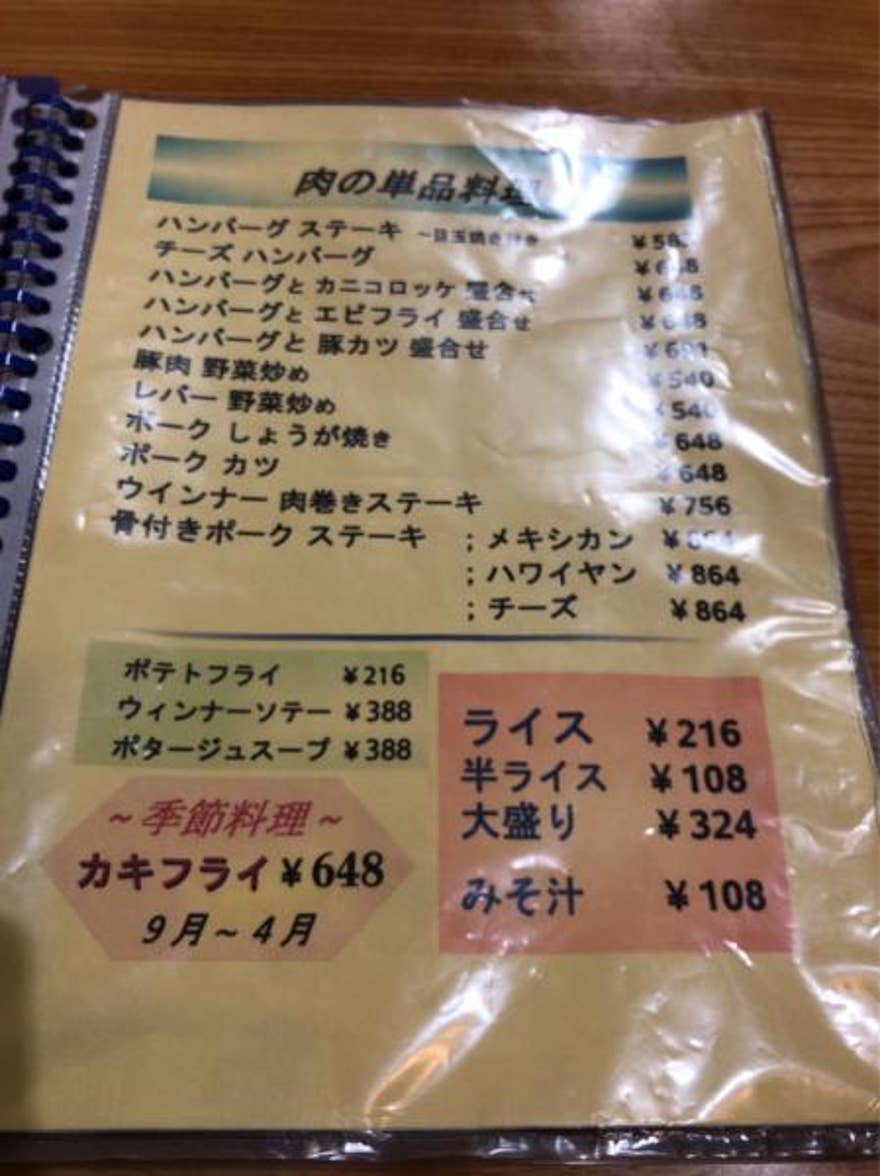 肉の単品料理
ハンバーグ ステーキ ～目玉焼き付き
チーズ ハンバーグ
ハンバーグと カニコロッケ 盛合せ ¥648
ハンバーグと エビフライ 盛合せ ¥648
ハンバーグと 豚カツ 盛合せ
豚肉 野菜炒め ¥540
レバー 野菜炒め ¥540
ポーク しょうが焼き ¥648
ポーク カツ ¥648
ウインナー 肉巻きステーキ ¥756
骨付きポーク ステーキ ;メキシカン
;ハワイヤン ¥864
;チーズ ¥864
ポテトフライ ¥216
ウィンナーソテー ¥388
ポタージュスープ ¥388
～季節料理～
カキフライ ¥648
9月～4月
ライス ¥216
半ライス ¥108
大盛り ¥324
みそ汁 ¥108